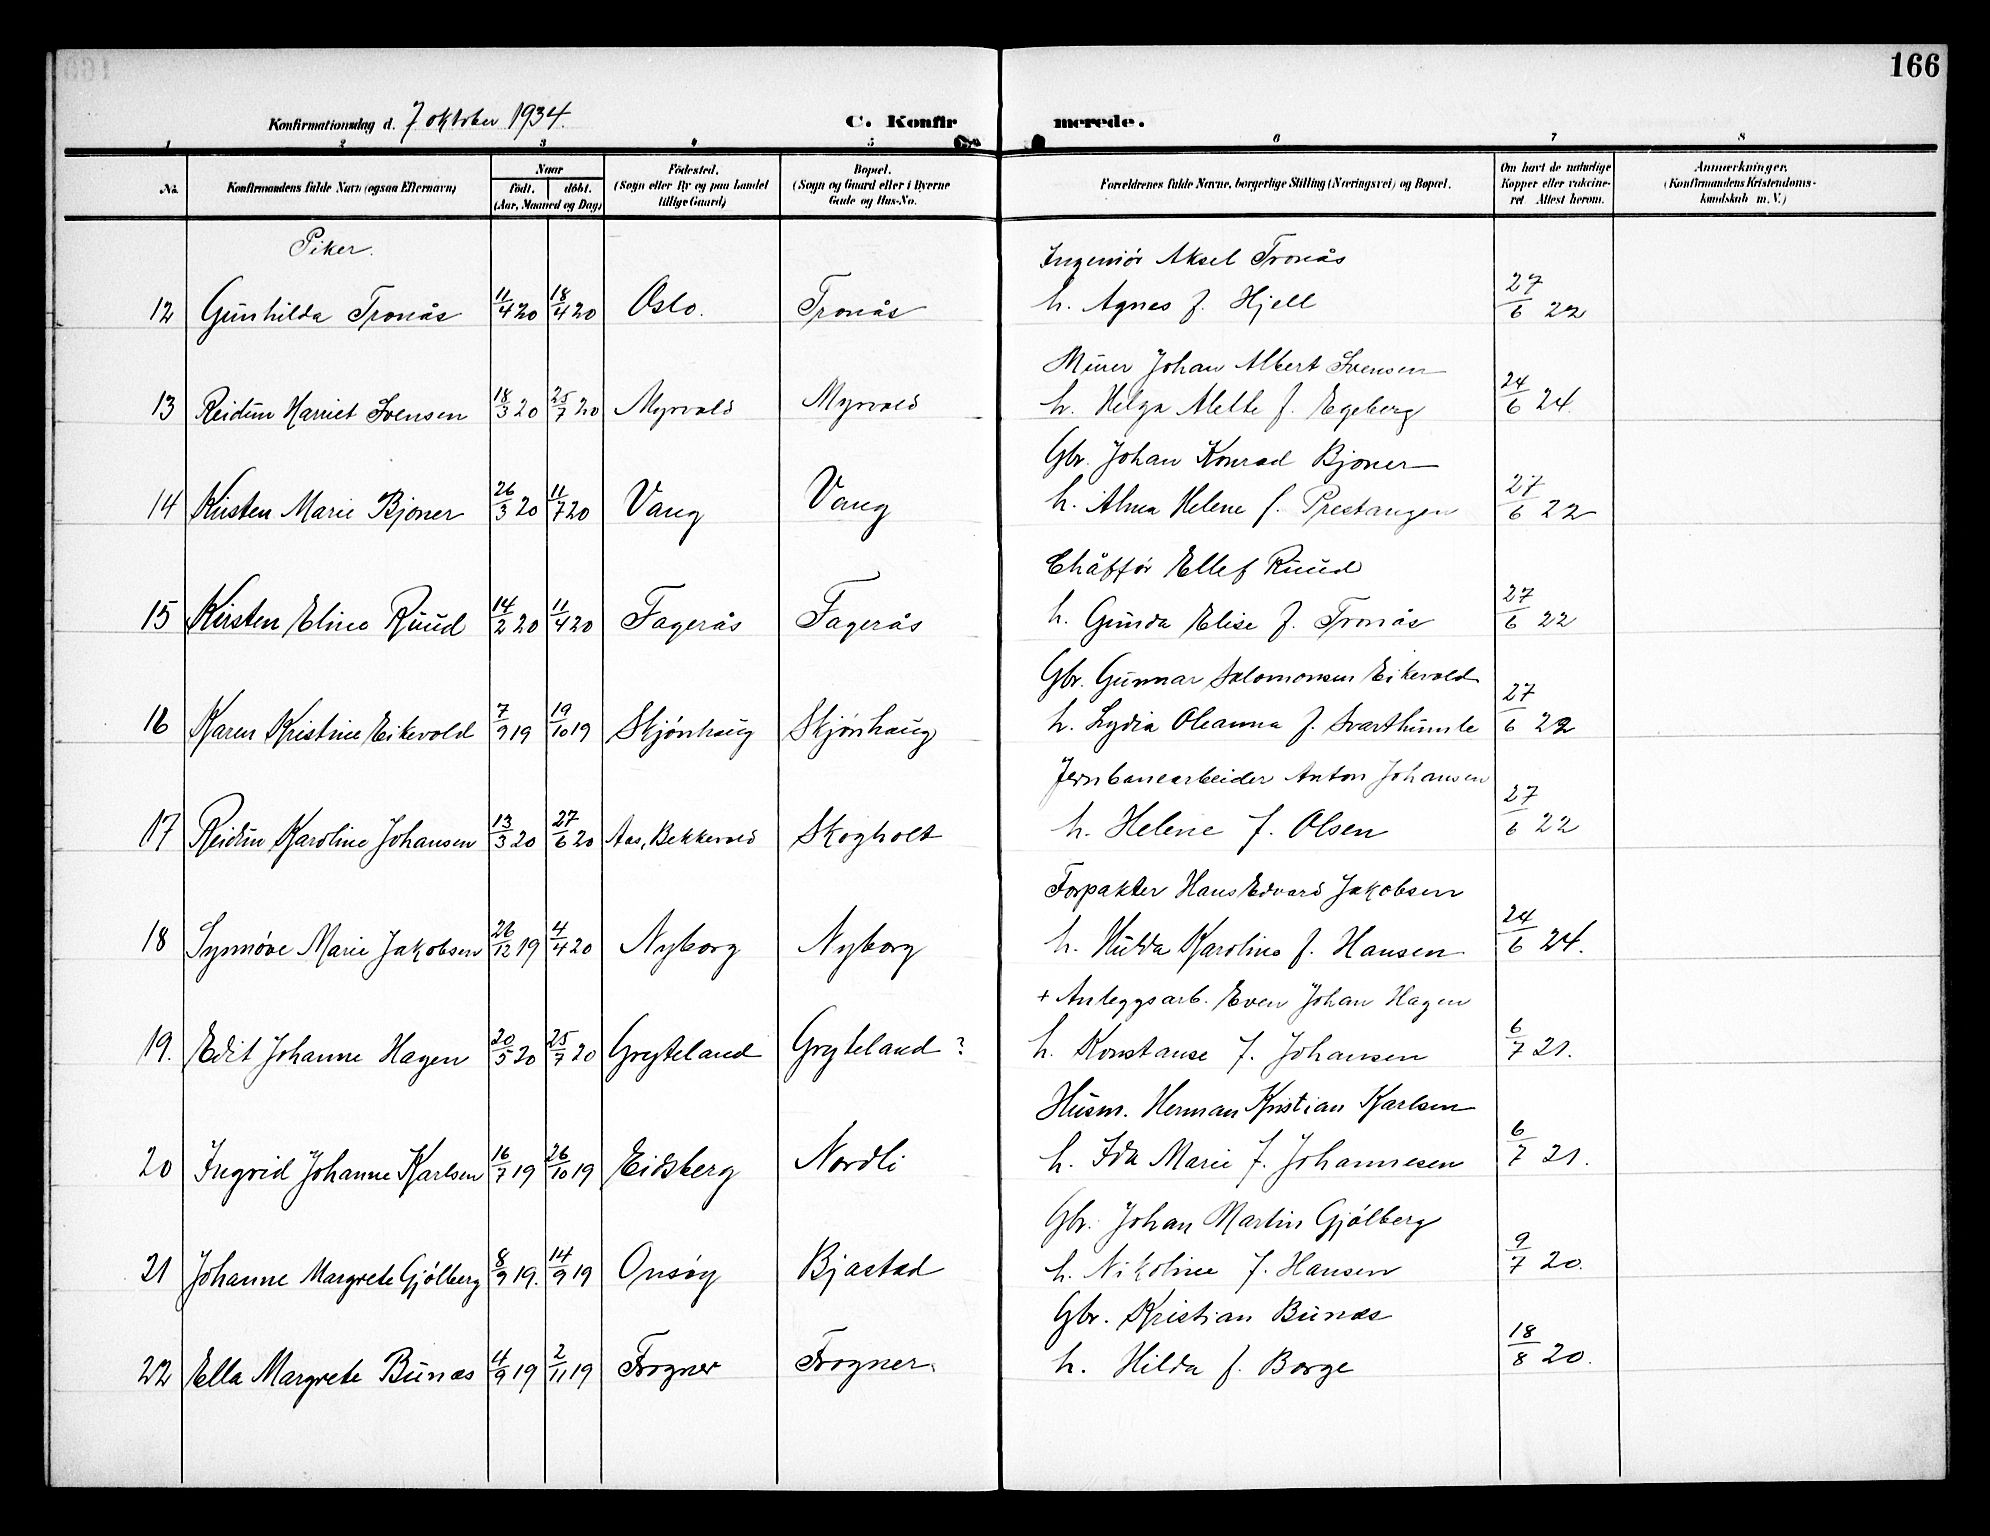 166
Konfirmationsdag d. 7 oktober 1934.
C. Konfirmerede.
1 2 3 4 5 6 7 8
No. Konfirmandens fulde Navn (ogsaa Efternavn) Naar født. døbt. (Aar, Maaned og Dag) Fødested. (Sogn eller By og paa Landet tillige Gaard) Bopæl. (Sogn og Gaard eller i Byerne Gade og Hus-No. Forældrenes fulde Navne, borgerlige Stilling (Næringsvei) og Bopæl. Om havt de naturlige Kopper eller vakcineret. Attest herom. Anmerkninger. (Konfirmandens Kristendomskundskab m. V.)
Piker.
Ingeniør Aksel Tronås
12 Gunhilda Tronås 11/4 20 18/4 20 Oslo. Tronås h. Agnes f. Hjell 27/6 22
Murer Johan Albert Svensen
13 Reidun Harriet Svensen 18/3 20 25/7 20 Myrvold Myrvold h. Helga Alette f. Egeberg 24/6 24.
Gbr. Johan Konrad Bjoner
14 Kirsten Marie Bjoner 26/3 20 11/7 20 Vang Vang h. Alma Helene f. Prestangen 27/6 22
Chåffør Ellef Ruud
15 Kirsten Eline Ruud 14/2 20 11/4 20 Fagerås Fagerås h. Gunda Elise f. Tronås 27/6 22
Gbr. Gunnar Salomonsen Eikevold
16 Karen Kristine Eikevold 7/9 19 19/10 19 Skjønhaug Skjønhaug h. Lydia Oleanna f. Svarthumle 27/6 22
Jernbanearbeider Anton Johansen
17 Reidun Karoline Johansen 13/3 20 27/6 20 Aas, Bekkevold Skogholt h. Helene f. Olsen 27/6 22
Forpakter Hans Edvard Jakobsen
18 Synnøve Marie Jakobsen 26/12 19 4/4 20 Nyborg Nyborg h. Hulda Karoline f. Hansen 24/6 24.
+ Anleggsarb. Even Johan Hagen
19. Edit Johanne Hagen 20/5 20 25/7 20 Gryteland Gryteland ? h. Konstanse f. Johansen 6/7 21.
Husm. Herman Kristian Karlsen
20 Ingrid Johanne Karlsen 16/7 19 26/10 19 Eidsberg Nordli h. Ida Marie f. Johannesen 6/7 21.
Gbr. Johan Martin Gjølberg
21 Johanne Margrete Gjølberg 8/9 19. 14/9 19 Onsøy Bjastad h. Nikoline f. Hansen 9/7 20.
Gbr. Kristian Bunæs
22 Ella Margrete Bunæs 4/9 19 2/11 19 Frogner Frogner. h. Hilda f. Borge 18/8 20.